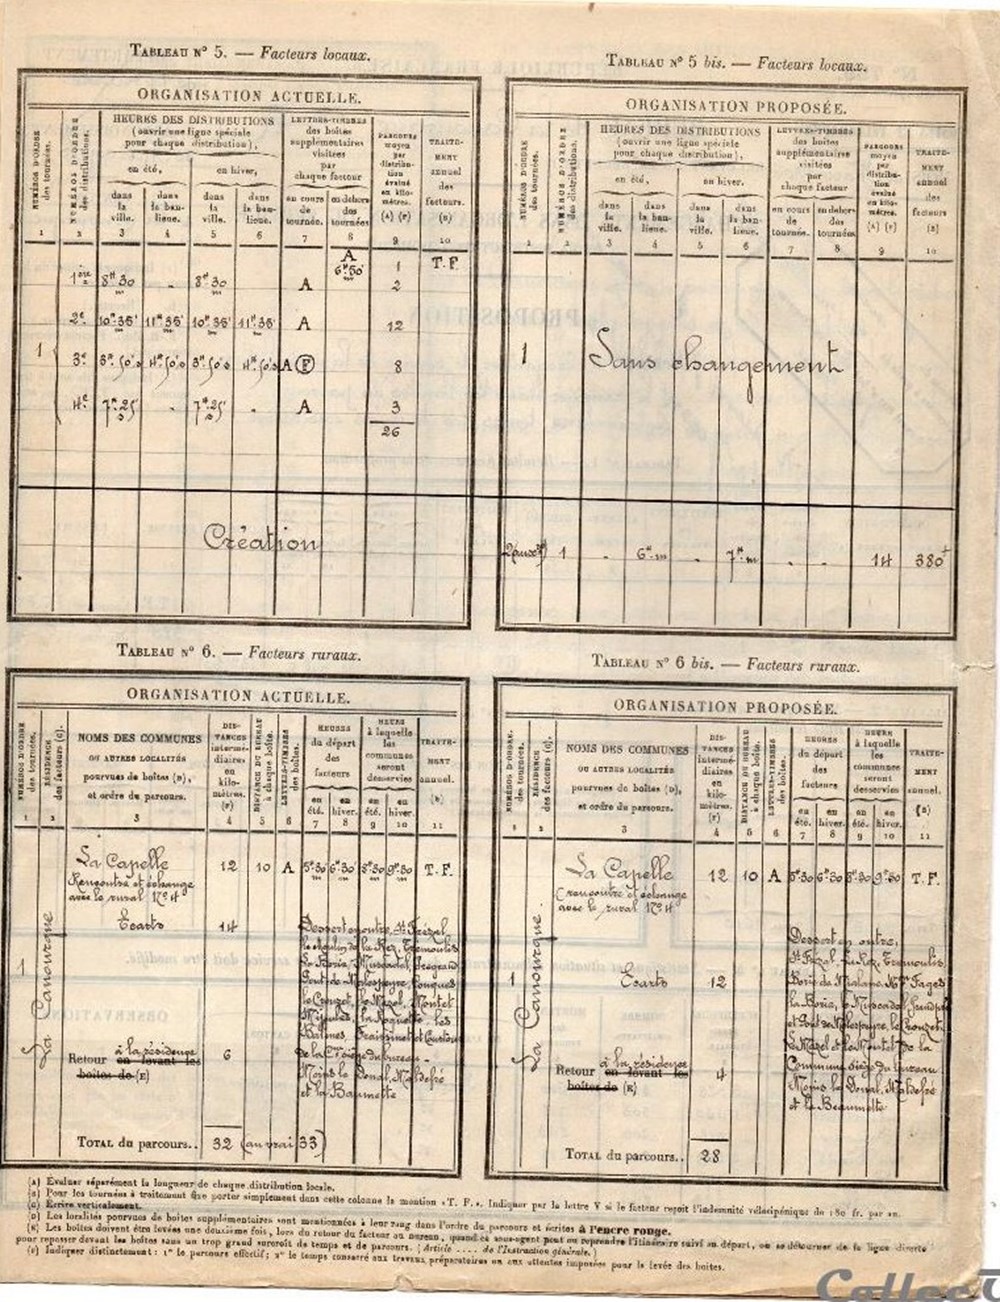 TABLEAU N° 5. — Facteurs locaux.
ORGANISATION ACTUELLE.
NUMÉROS D'ORDRE des tournées.
NUMÉROS D'ORDRE des distributions.
HEURES DES DISTRIBUTIONS
(ouvrir une ligne spéciale
pour chaque distribution),
en été,
en hiver,
dans la ville.
dans la banlieue.
dans la ville.
dans la banlieue.
LETTRES-TIMBRES
des boîtes
supplémentaires
visitées
par
chaque facteur
en cours de tournée.
en dehors des tournées
PARCOURS
moyen
par
distribution
évalué
en kilomètres.
(A) (F)
TRAITEMENT
annuel
des
facteurs.
(B)
1 2 3 4 5 6 7 8 9 10
A
6H50' 1 T.F.
1ère 8H30 - 8H30 A 2
2e 10H35' 11H35' 10H35' 11H35' A 12
1 3e A F 8
4e 7H25' - 7H25' - A 3
26
Création
TABLEAU N° 5 bis. — Facteurs locaux.
ORGANISATION PROPOSÉE.
NUMÉROS D'ORDRE des tournées.
NUMÉROS D'ORDRE des distributions.
HEURES DES DISTRIBUTIONS
(ouvrir une ligne spéciale
pour chaque distribution),
en été,
en hiver.
dans la ville.
dans la banlieue.
dans la ville.
dans la banlieue.
LETTRES-TIMBRES
des boîtes
supplémentaires
visitées
par
chaque facteur
en cours de tournée.
en dehors des tournées
PARCOURS
moyen
par
distribution
évalué
en kilomètres.
(A) (F)
TRAITEMENT
annuel
des
facteurs
(B)
1 2 3 4 5 6 7 8 9 10
1 Sans changement
1 - 6H m - 7H m - - 14 380
TABLEAU N° 6. — Facteurs ruraux.
ORGANISATION ACTUELLE.
NUMÉROS D'ORDRE des tournées.
RÉSIDENCE des facteurs (C).
NOMS DES COMMUNES
OU AUTRES LOCALITÉS
pourvues de boîtes (D),
et ordre du parcours.
DISTANCES
intermédiaires
en
kilomètres.
(F)
DISTANCE DU BUREAU à chaque boîte.
LETTRES-TIMBRES des boîtes.
HEURES
du départ
des
facteurs
en été.
en hiver.
HEURE
à laquelle
les
communes
seront
desservies
en été.
en hiver.
TRAITEMENT
annuel.
(B)
1 2 3 4 5 6 7 8 9 10 11
La Capelle 12 10 A 5H30 6H30 8H30 9H30 T.F.
Rencontre et échange
avec le rural N° 4
Ecarts 14
1
La Canourgue
Dessert en outre, St Frézal,
le Moulin de la Rez, Trémoulis
Pont de Malespeyre,
le Crouzet, le Mazel, Montet
les
et
de la Cne siège du bureau -
Moins le Donal, Maldefré
et la Baumette
Retour à la résidence 6
en levant les
boîtes de (E)
TOTAL du parcours.. 32 (au vrai 33)
TABLEAU N° 6 bis. — Facteurs ruraux.
ORGANISATION PROPOSÉE.
NUMÉROS D'ORDRE. des tournées.
RÉSIDENCE des facteurs (C).
NOMS DES COMMUNES
OU AUTRES LOCALITÉS
pourvues de boîtes (D),
et ordre du parcours.
DISTANCES
intermédiaires
en
kilomètres.
(F)
DISTANCE DU BUREAU à chaque boîte.
LETTRES-TIMBRES des boîtes.
HEURES
du départ
des
facteurs
en été.
en hiver.
HEURE
à laquelle
les
communes
seront
desservies
en été.
en hiver.
TRAITEMENT
annuel.
(B)
1 2 3 4 5 6 7 8 9 10 11
La Capelle 12 10 A 5H30 6H30 8H30 9H30 T.F.
(rencontre et échange
avec le rural N° 4
1 Ecarts 12
La Canourgue
Dessert en outre,
St Frézal, La Rez, Trémoulis
Fages
la Boria, le Mascadal,
et Pont de Malespeyre, le Crouzet
Le Mazel et le Montet de la
Commune siège du bureau
Moins le Donal, Maldefré
et la Beaumette
Retour à la résidence 4
en levant les
boîtes de (E)
TOTAL du parcours.. 28
(A) Évaluer séparément la longueur de chaque distribution locale.
(B) Pour les tournées à traitement fixe porter simplement dans cette colonne la mention « T. F. ». Indiquer par la lettre V si le facteur reçoit l'indemnité vélocipédique de 180 fr. par an.
(C) Écrire verticalement.
(D) Les localités pourvues de boîtes supplémentaires sont mentionnées à leur rang dans l'ordre du parcours et écrites à l'encre rouge.
(E) Les boîtes doivent être levées une deuxième fois, lors du retour du facteur au bureau, quand ce sous-agent peut ou reprendre l'itinéraire suivi au départ, ou se détourner de la ligne directe
pour repasser devant les boîtes sans un trop grand surcroît de temps et de parcours. (Article .... de l'Instruction générale.)
(F) Indiquer distinctement : 1° le parcours effectif; 2° le temps consacré aux travaux préparatoires ou aux attentes imposées pour la levée des boîtes.